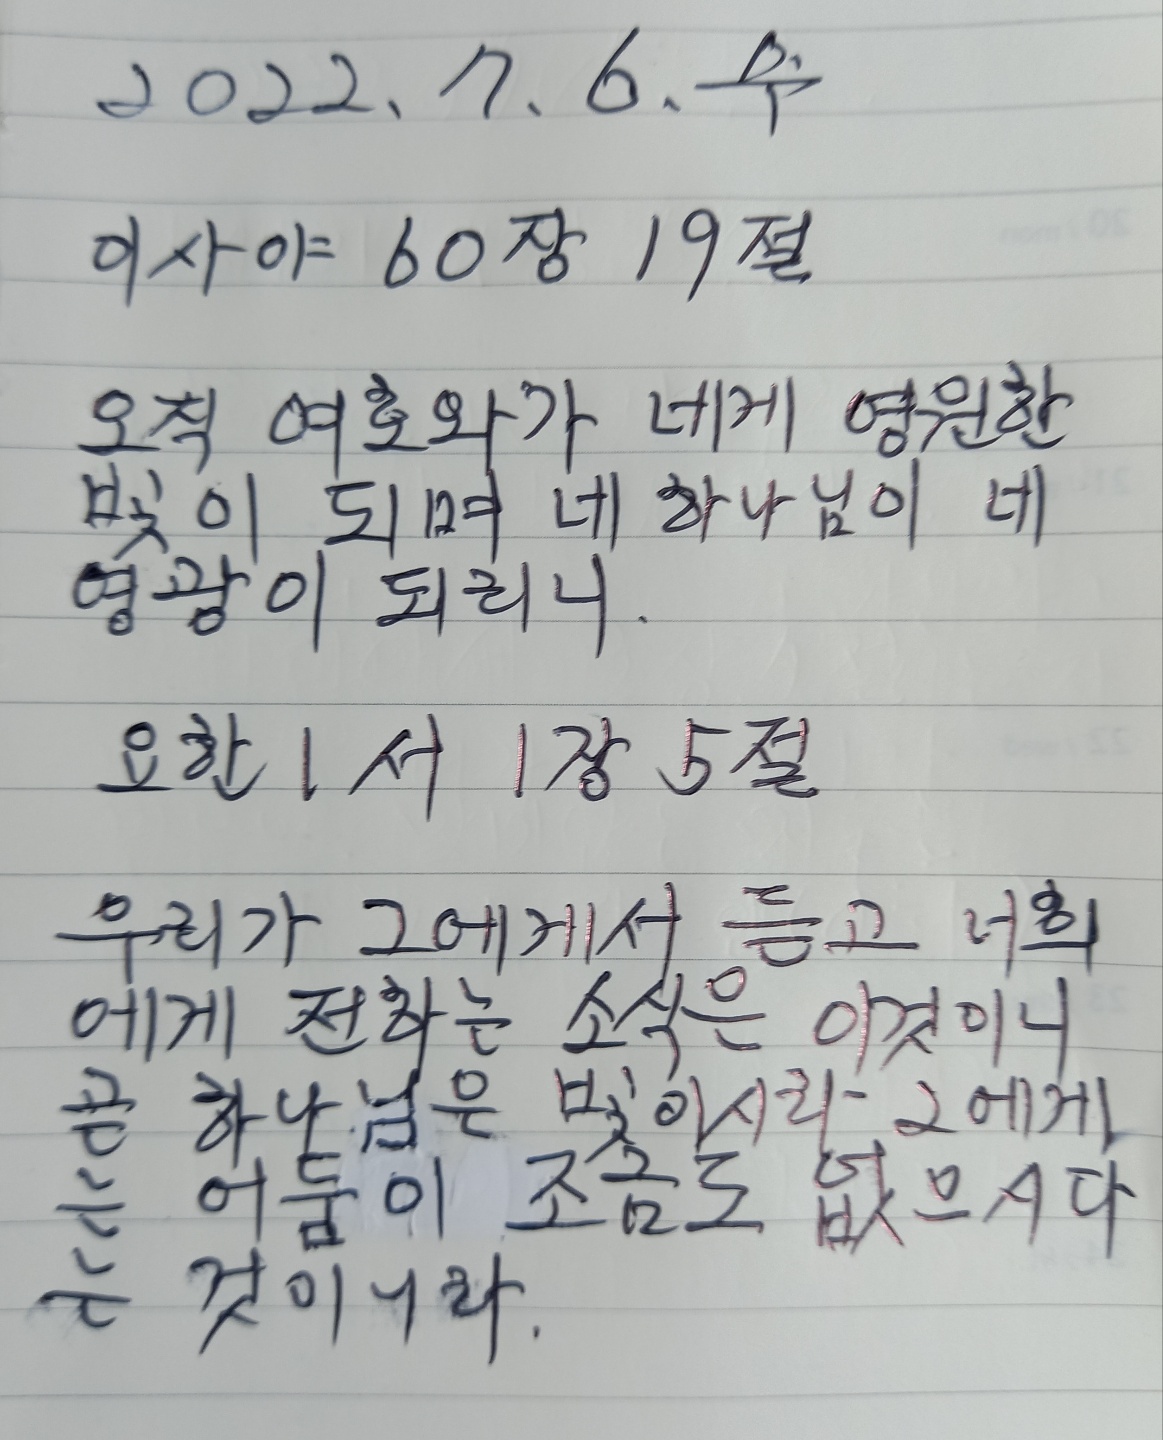 2022. 7. 6. 수
이사야 60장 19절
오직 여호와가 네게 영원한
빛이 되며 네 하나님이 네
영광이 되리니.
요한1서 1장 5절
우리가 그에게서 듣고 너희
에게 전하는 소식은 이것이니
곧 하나님은 빛이시라 그에게
는 어둠이 조금도 없으시다
는 것이니라.